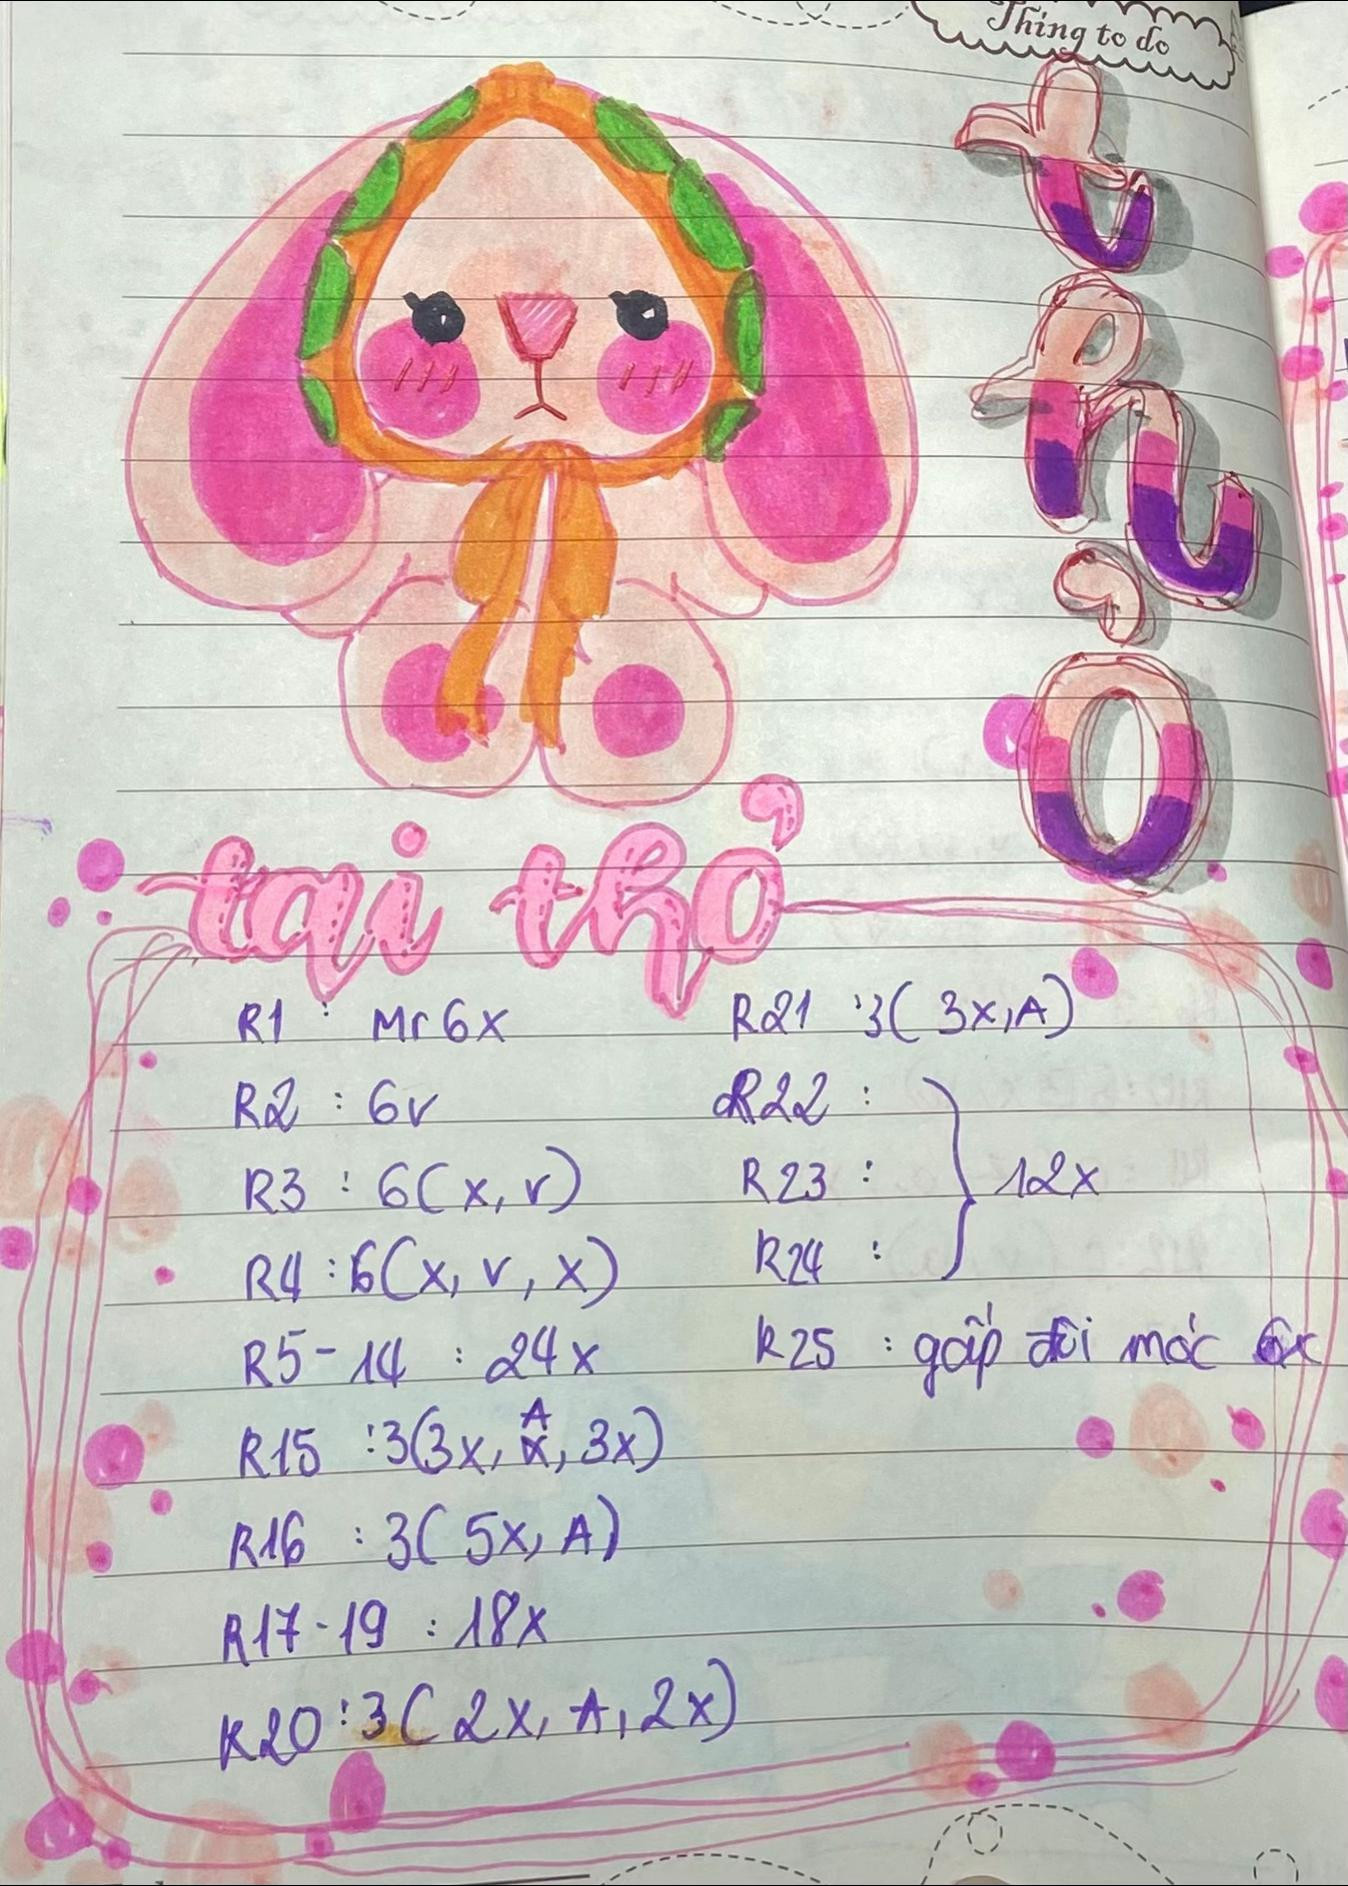 Thing to do
thỏ
tai thỏ
R1 : Mr6x
R2 : 6v
R3 : 6(x, v)
R4 : 6(x, v, x)
R5-14 : 24x
R15 : 3(3x, A, 3x)
R16 : 3(5x, A)
R17-19 : 18x
R20 : 3(2x, A, 2x)
R21 : 3(3x, A)
R22 :
R23 : } 12x
R24 :
R25 : gấp đôi móc 6x